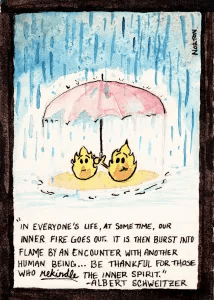 NELSON
"IN EVERYONE'S LIFE, AT SOME TIME, OUR
INNER FIRE GOES OUT. IT IS THEN BURST INTO
FLAME BY AN ENCOUNTER WITH ANOTHER
HUMAN BEING... BE THANKFUL FOR THOSE
WHO rekindle THE INNER SPIRIT."
-ALBERT SCHWEITZER